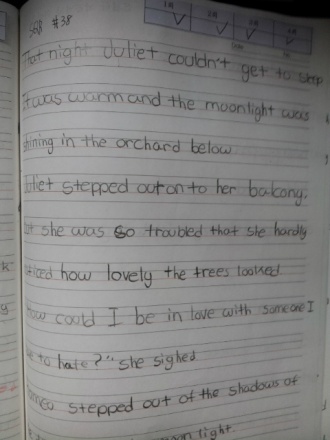 SAR #38
That night Juliet couldn't get to sleep
It was warm and the moonlight was
shining in the orchard below
Juliet stepped out on to her balcony.
But she was so troubled that she hardly
noticed how lovely the trees looked
How could I be in love with someone I
to hate?" she sighed
Romeo stepped out of the shadows of
moon light.